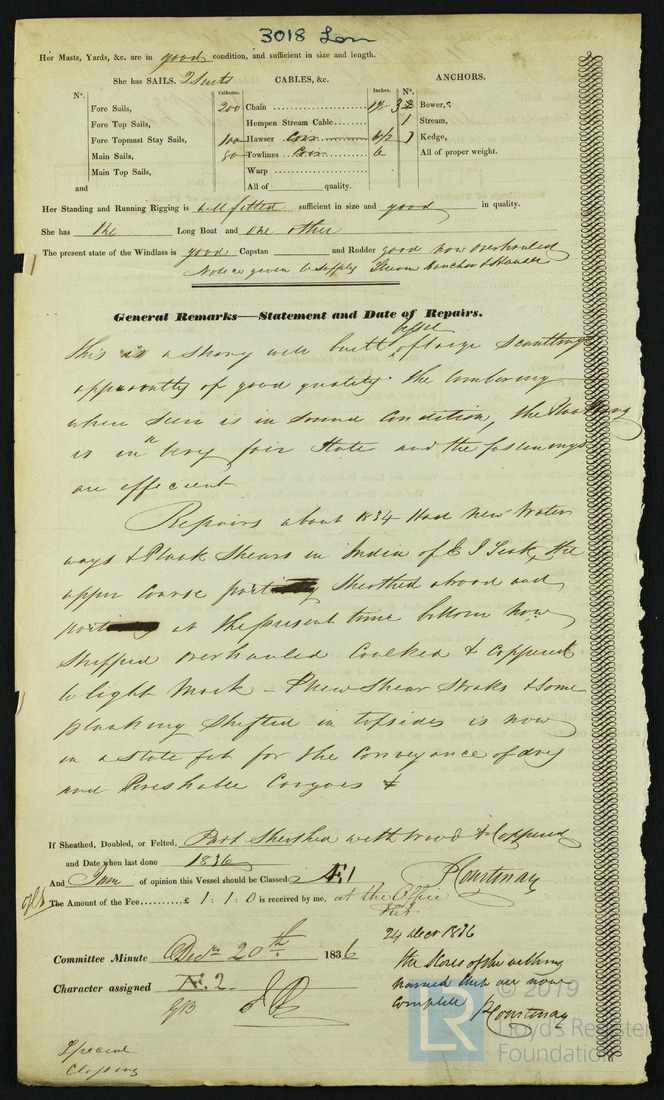 3018 Lon
Her Masts, Yards, &c. are in good condition, and sufficient in size and length.
She has SAILS. 2 Suits CABLES, &c. ANCHORS.
Nº. Fathoms. Inches. Nº.
Fore Sails, 200 Chain 3 Bower,s
Fore Top Sails, Hempen Stream Cable 1 Stream,
Fore Topmast Stay Sails, 100 Hawser Coir 6½ 1 Kedge,
Main Sails, 80 Towlines Coir 6 All of proper weight.
Main Top Sails, Warp
and All of quality.
Her Standing and Running Rigging is well fitted sufficient in size and good in quality.
She has One Long Boat and one other
The present state of the Windlass is good Capstan and Rudder good now overhauled
Notice given to supply Stream anchor & Hawser
General Remarks—Statement and Date of Repairs.
This is a strong well built vessel of large scantlings
apparently of good quality. the timbering
where seen is in sound condition, the Planking
is in very fair State and the fastenings
are efficient
Repairs about 1834 Had New Water
ways & Plank Shears in India of E I Teak, the
upper Course part Sheathed aboard and
part at the present time bottom now
stripped overhauled Caulked & Coppered
to light Mark - New Shear Straks & some
planking shifted in topsides is now
in a state fit for the conveyance of dry
and Perishable Cargoes &
If Sheathed, Doubled, or Felted, Part Sheathed with wood & Coppered
and Date when last done 1836
And I am of opinion this Vessel should be Classed Æ 1
P Courtenay
The Amount of the Fee £ 1 : 1 : 0 is received by me, at the Office
24 Decr 1836
Committee Minute Decr 20th 1836
the Stores of the within
Character assigned Æ. 2.
named Ship are now
complete P Courtenay
GB
Special
© 2019
LR
Lloyd's Register
Foundation